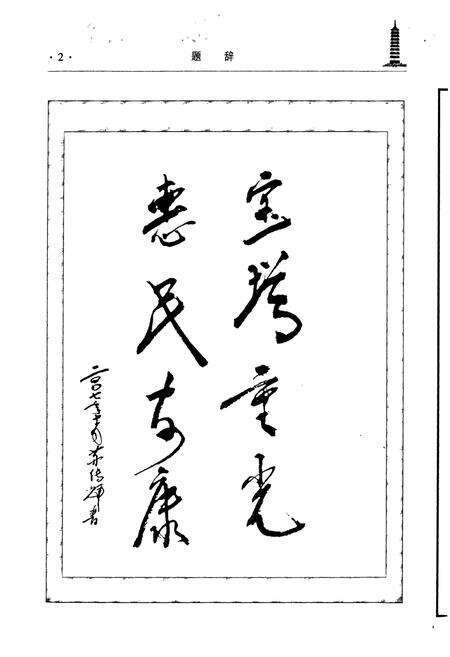 · 2 ·
题 辞
宝塔重光
惠民安康
二〇〇七年十月 传 书